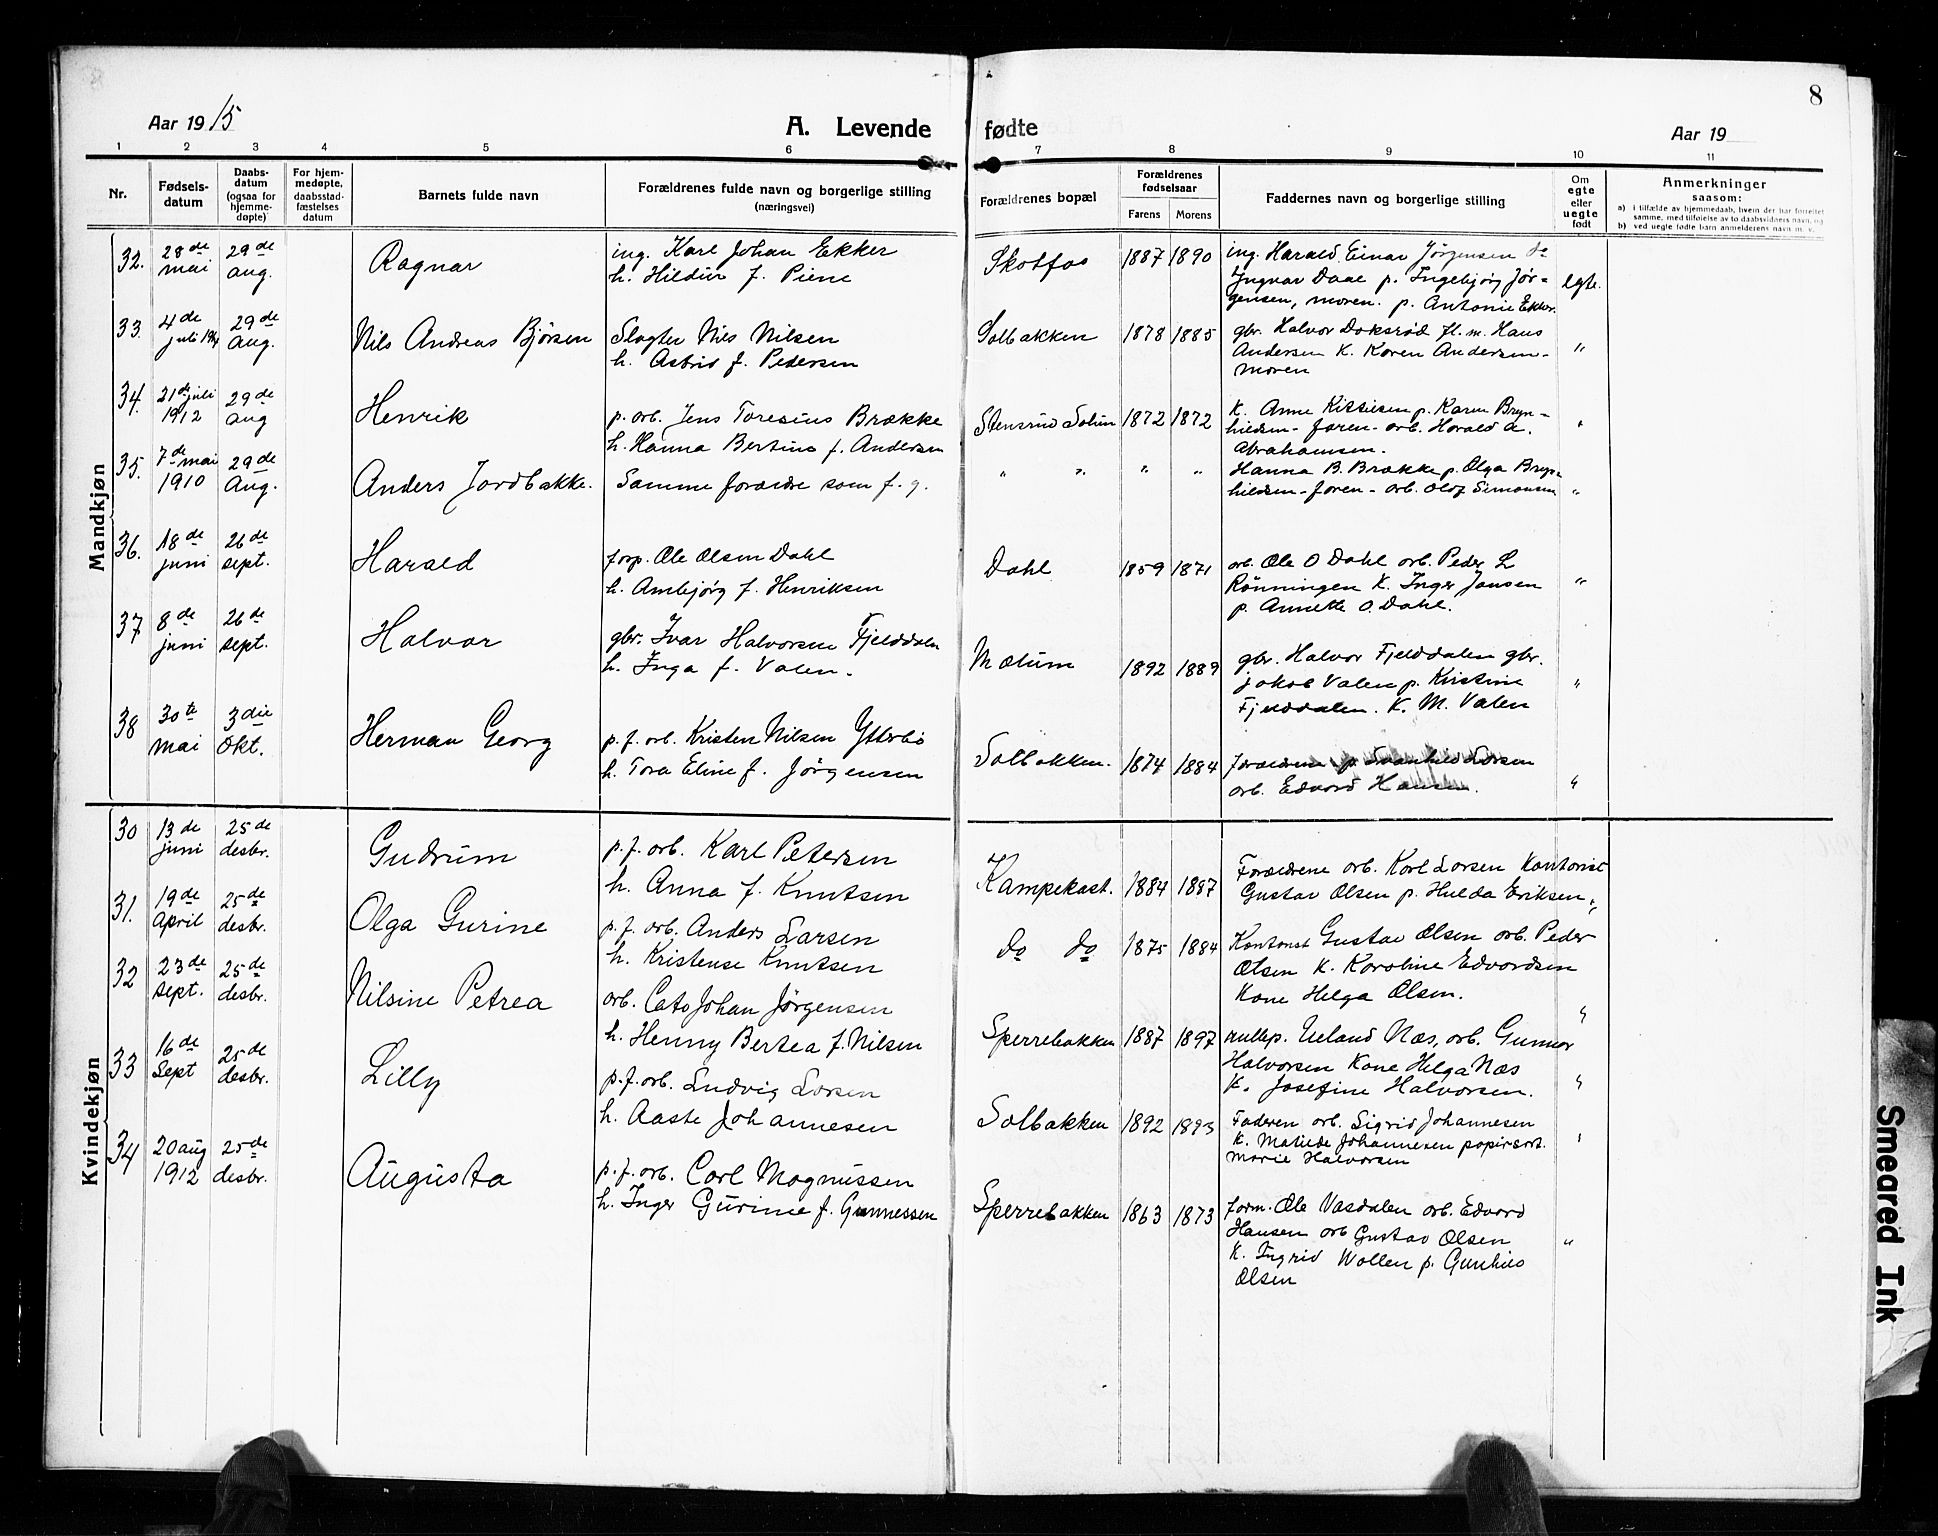 8
Aar 1915
A. Levende fødte
Aar 19
1 2 3 4 5 6 7 8 9 10 11
Nr.
Fødsels-
datum
Daabs-
datum
(ogsaa for
hjemme-
døpte)
For hjem-
medøpte,
daabsstad-
fæstelses
datum
Barnets fulde navn
Forældrenes fulde navn og borgerlige stilling
(næringsvei)
Forældrenes bopæl
Forældrenes
fødselsaar
Farens Morens
Faddernes navn og borgerlige stilling
Om
egte
eller
uegte
født
Anmerkninger
saasom:
a) i tilfælde av hjemmedaab, hvem der har forrettet
samme, med tilføielse av to daabsvidners navn, og
b) ved uegte fødte barn anmelderens navn m. v.
Mandkjøn
32. 28de mai 29de aug. Ragnar
ing. Karl Johan Ekker
h. Hildur f. Piene
Skotfos 1887 1890
ing. Harald Einar Jørgensen do
Ingvar Daae p. Ingebjørg Jør-
gensen, moren. p. Antonie Ekker.
egte.
33. 4de juli 29de aug. Nils Andreas Bjørsen
Slagter Nils Nilsen
h. Astrid f. Pedersen
Solbakken 1878 1885
gbr. Halvor Doksrød fl. m. Hans
Andersen K. Karen Andersen-
moren
"
34. 21de juli 1912 29de aug Henrik
p. arb. Jens Toresius Brække
h. Hanna Bertine f. Andersen
Stensrud Solum 1872 1872
K. Anne Kittilsen p. Karen Bryn-
hildsen- faren- arb. Harald A.
Abrahamsen.
"
35. 7de mai 1910 29de Aug. Anders Jordbakke.
Samme forældre som f. g.
" " " "
Hanna B. Brække p. Olga Bryn-
hildsen- faren- arb. Olof Simonsen
"
36. 18de juni 26de sept. Harald
forp. Ole Olsen Dahl
h. Ambjørg f. Henriksen
Dahl 1859 1871
arb. Ole O Dahl arb. Peder L
Rønningen K. Inger Jansen
p. Annette O. Dahl.
"
37 8de juni 26de sept. Halvor
gbr. Ivar Halvorsen Fjelddalen
h. Inga f. Valen.
Mælum 1892 1889
gbr. Halvor Fjelddalen gbr.
Jakob Valen p. Kristine
Fjelddalen. K. M. Valen
"
38 30te mai 3die Okt. Herman Georg
p. f. arb. Kristen Nilsen Ytterbø
h. Tora Eline f. Jørgensen
Solbakken. 1874 1884
forældrene p. Larsen
arb. Edvard Hansen.
"
Kvindekjøn
30 13de juni 25de desbr. Gudrum
p. f. arb. Karl Petersen
h. Anna f. Knutsen
Kampekast. 1884 1887
Forældrene arb. Karl Larsen Kantonist
Gustav Olsen p. Hulda Eriksen
"
31. 19de April 25de desbr. Olga Gurine
p. f. arb. Anders Larsen
h. Kristense Knutsen
do do 1875 1884
Kantonist Gustav Olsen arb. Peder
Olsen K. Karoline Edvardsen
Kone Helga Olsen.
"
32 23de sept. 25de desbr. Nilsine Petrea
arb. Cato Johan Jørgensen
h. Henny Bertea f. Nilsen
Sperrebakken 1887 1897
rullep. Ueland Næs, arb. Gunnar
Halvorsen Kone Helga Næs
K. Josefine Halvorsen.
"
33 16de Sept 25de desbr. Lilly
p. f. arb. Ludvig Larsen
h. Aaste Johannesen
Solbakken 1892 1893
Faderen arb. Sigrid Johannesen
K. Matilde Johannesen papirsort.
Marie Halvorsen
"
34 20 aug 1912 25de desbr. Augusta
p. f. arb. Carl Magnussen
h. Inger Gurine f. Gunnessen
Sperrebakken 1863 1873
form. Ole Vasdalen arb. Edvard
Hansen arb Gustav Olsen
K. Ingrid Wollen p. Gunhild
Olsen
"
Smeared Ink